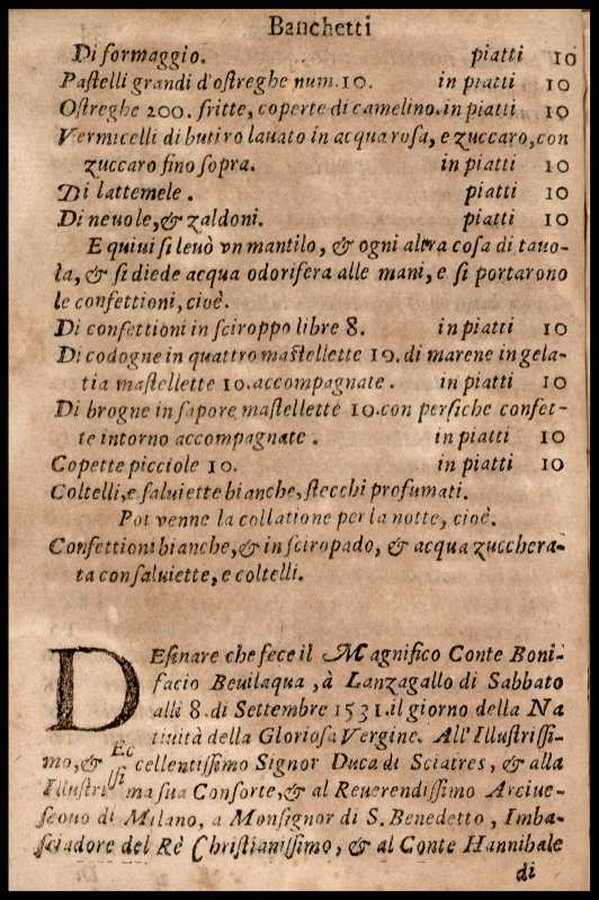 Banchetti
Di formaggio. piatti 10
Paſtelli grandi d'oſtreghe num. 10. in piatti 10
Oſtreghe 200. fritte, coperte di camelino. in piatti 10
Vermicelli di butiro lauato in acqua roſa, e zuccaro, con
zuccaro fino ſopra. in piatti 10
Di lattemele. piatti 10
Di neuole, & zaldoni. piatti 10
E quiui ſi leuò vn mantilo, & ogni altra coſa di tauo-
la, & ſi diede acqua odorifera alle mani, e ſi portarono
le confettioni, cioè.
Di confettioni in ſciroppo libre 8. in piatti 10
Di codogne in quattro maſtellette 10. di marene in gela-
tia maſtellette 10. accompagnate. in piatti 10
Di brogne in ſapore maſtellette 10. con perſiche confet-
te intorno accompagnate. in piatti 10
Copette picciole 10. in piatti 10
Coltelli, e ſaluiette bianche, ſtecchi profumati.
Poi venne la collatione per la notte, cioè.
Confettioni bianche, & in ſciropado, & acqua zucchera-
ta con ſaluiette, e coltelli.
DEſinare che fece il Magnifico Conte Boni-
facio Beuilaqua, à Lanzagallo di Sabbato
alli 8. di Settembre 1531. il giorno della Na
tiuità della Glorioſa Vergine. All'Illuſtriſſi-
mo, & Eccellentiſſimo Signor Duca di Sciatres, & alla
Illuſtriſſima ſua Conſorte, & al Reuerendiſſimo Arciue-
ſcouo di Milano, a Monſignor di S. Benedetto, Imba-
ſciadore del Rè Chriſtianiſſimo, & al Conte Hannibale
di